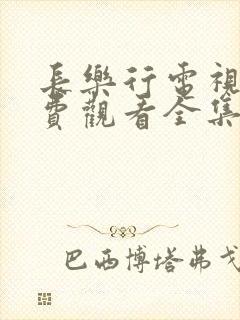 長樂行電視
費觀看全集
巴西博塔弗戈